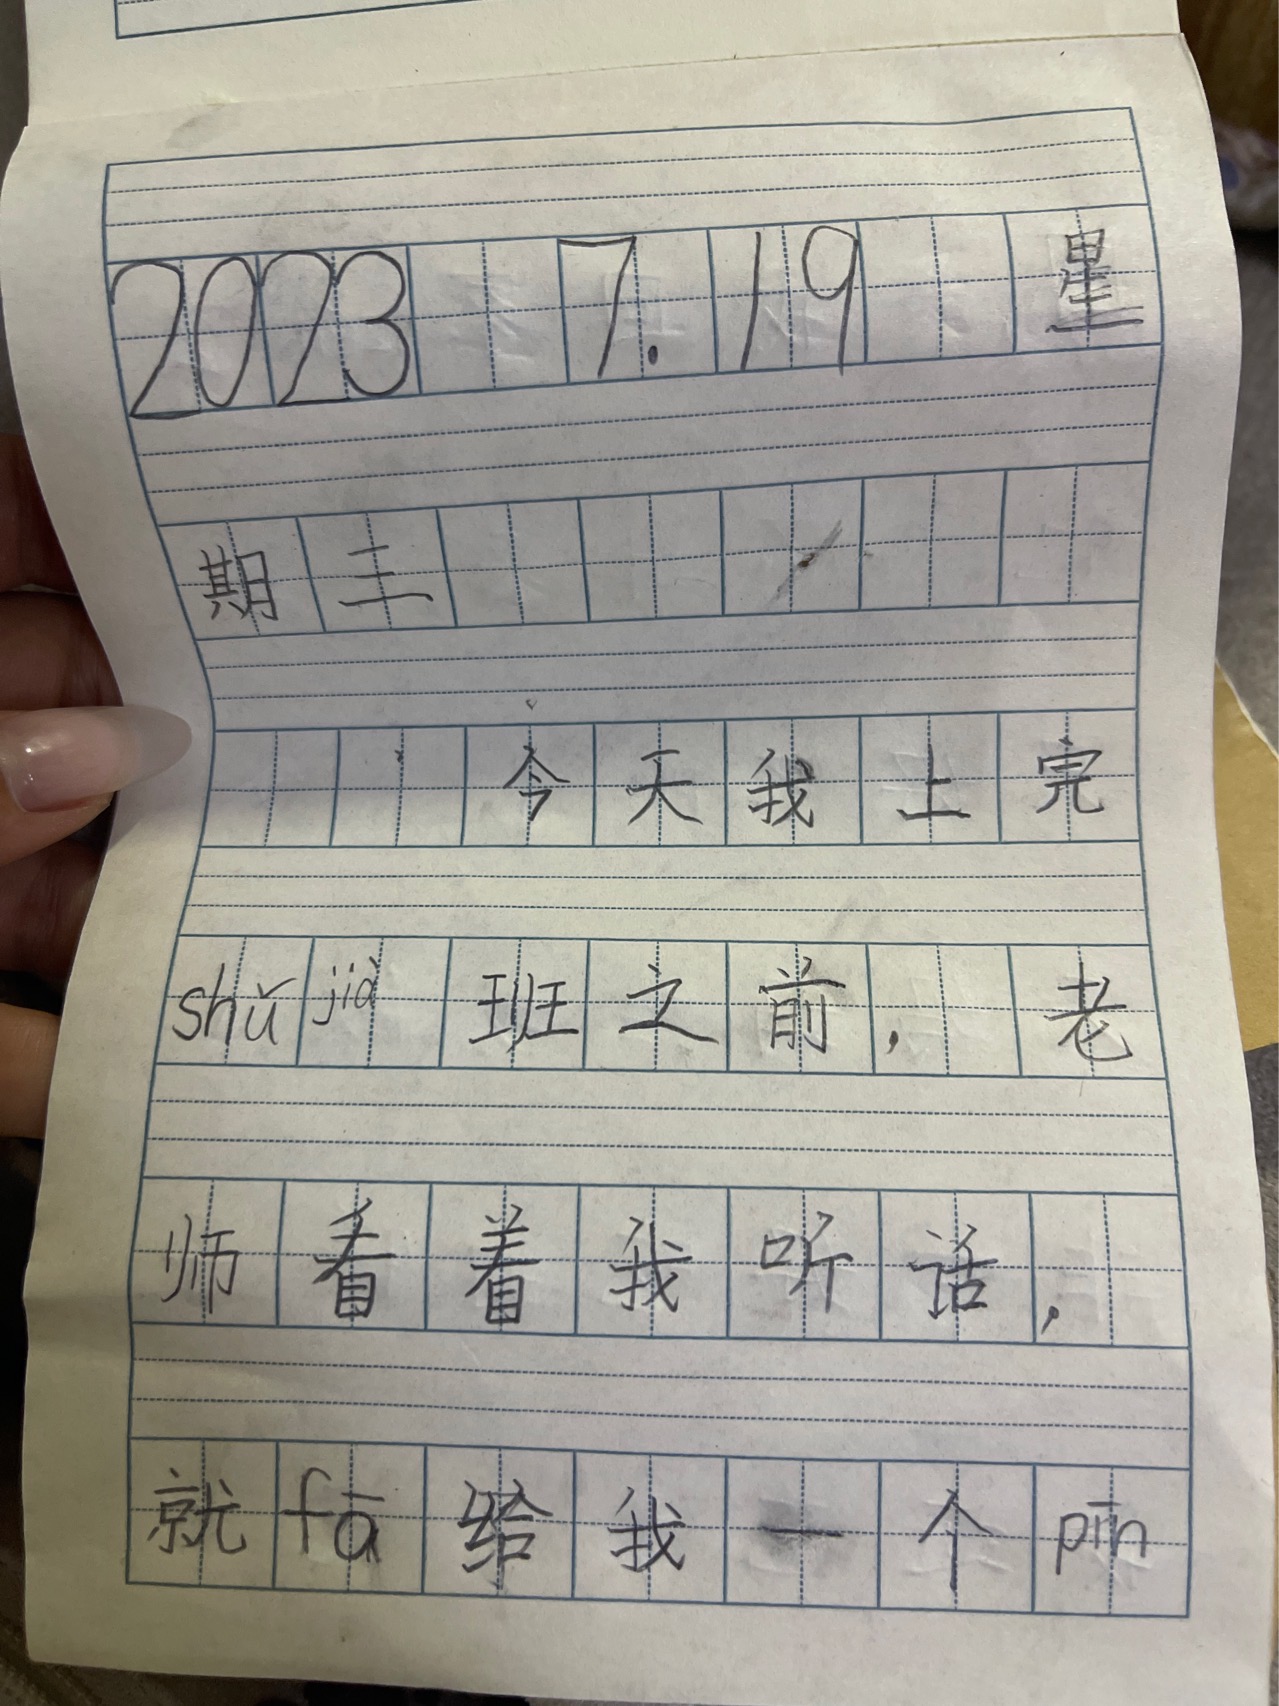 2023 7.19 星
期三
今天我上完
shǔ jià 班之前，老
师看着我听话，
就 fā 给我一个 pīn